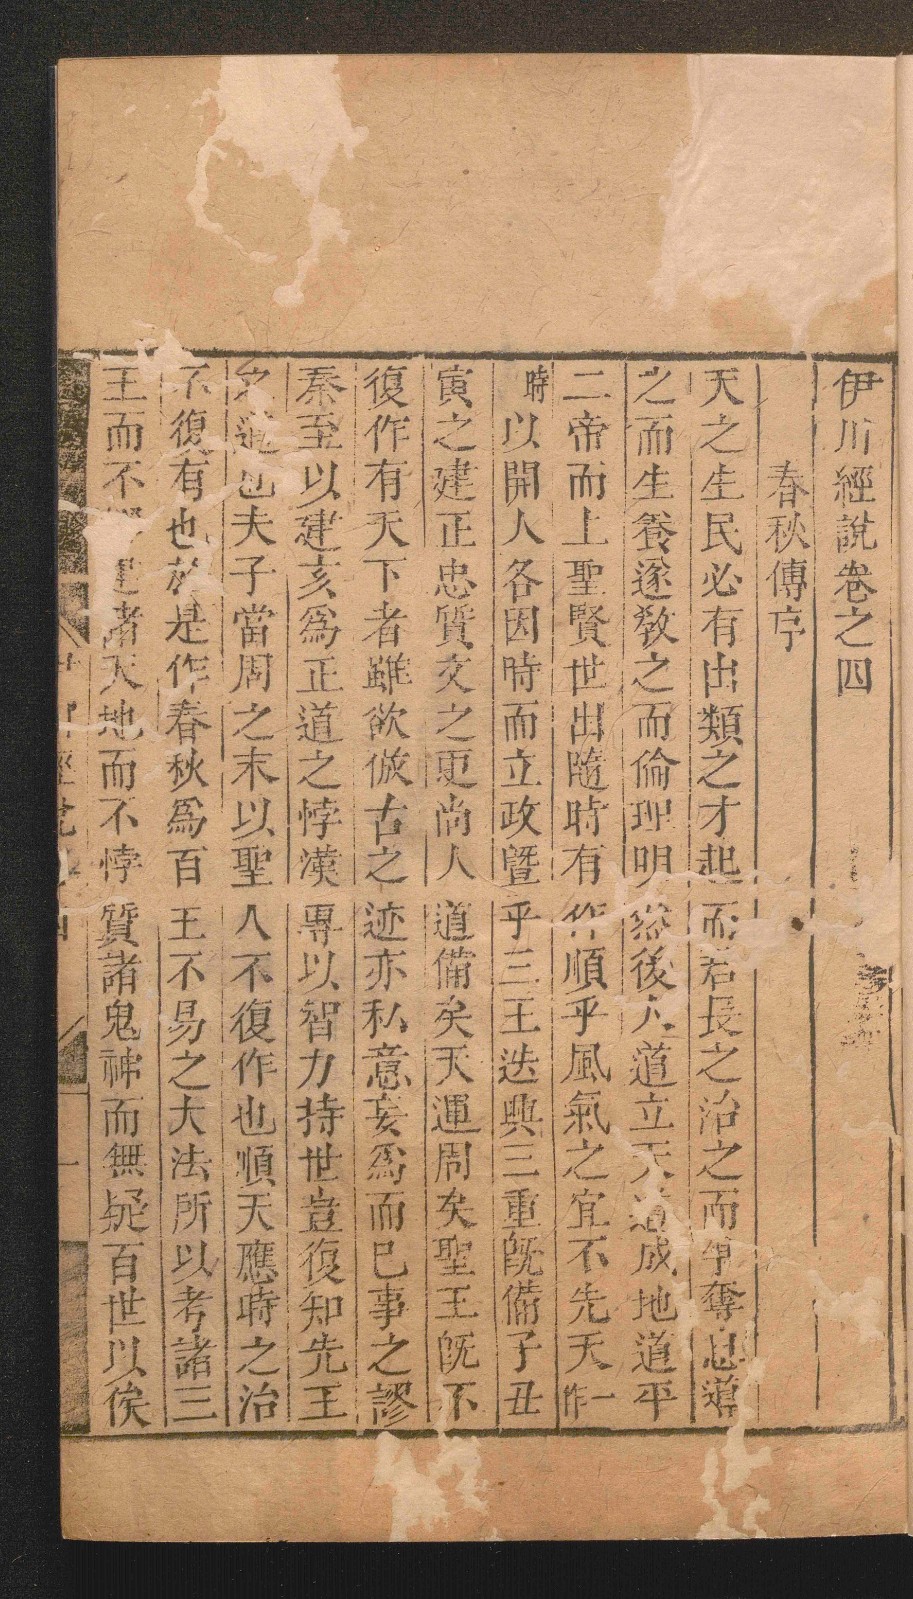 伊川經說卷之四
春秋傳序
天之生民必有出類之才起而君長之治之而爭奪息導
之而生養遂敎之而倫理明然後人道立天道成地道平
二帝而上聖賢世出隨時有作順乎風氣之宜不先天一作
時以開人各因時而立政曁乎三王迭興三重旣備子丑
寅之建正忠質文之更尚人道備矣天運周矣聖王旣不
復作有天下者雖欲倣古之迹亦私意妄爲而已事之謬
秦至以建亥爲正道之悖漢專以智力持世豈復知先王
之道也夫子當周之末以聖人不復作也順天應時之治
不復有也於是作春秋爲百王不易之大法所以考諸三
王而不建諸天地而不悖質諸鬼神而無疑百世以俟
經四
一